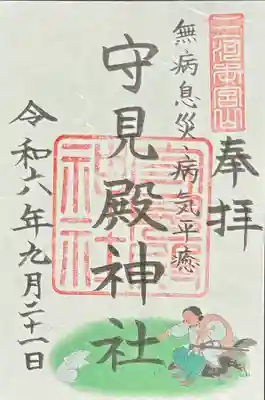 三河本宮山
奉拝
無病息災、病気平癒
守見殿神社
令和六年九月二十一日